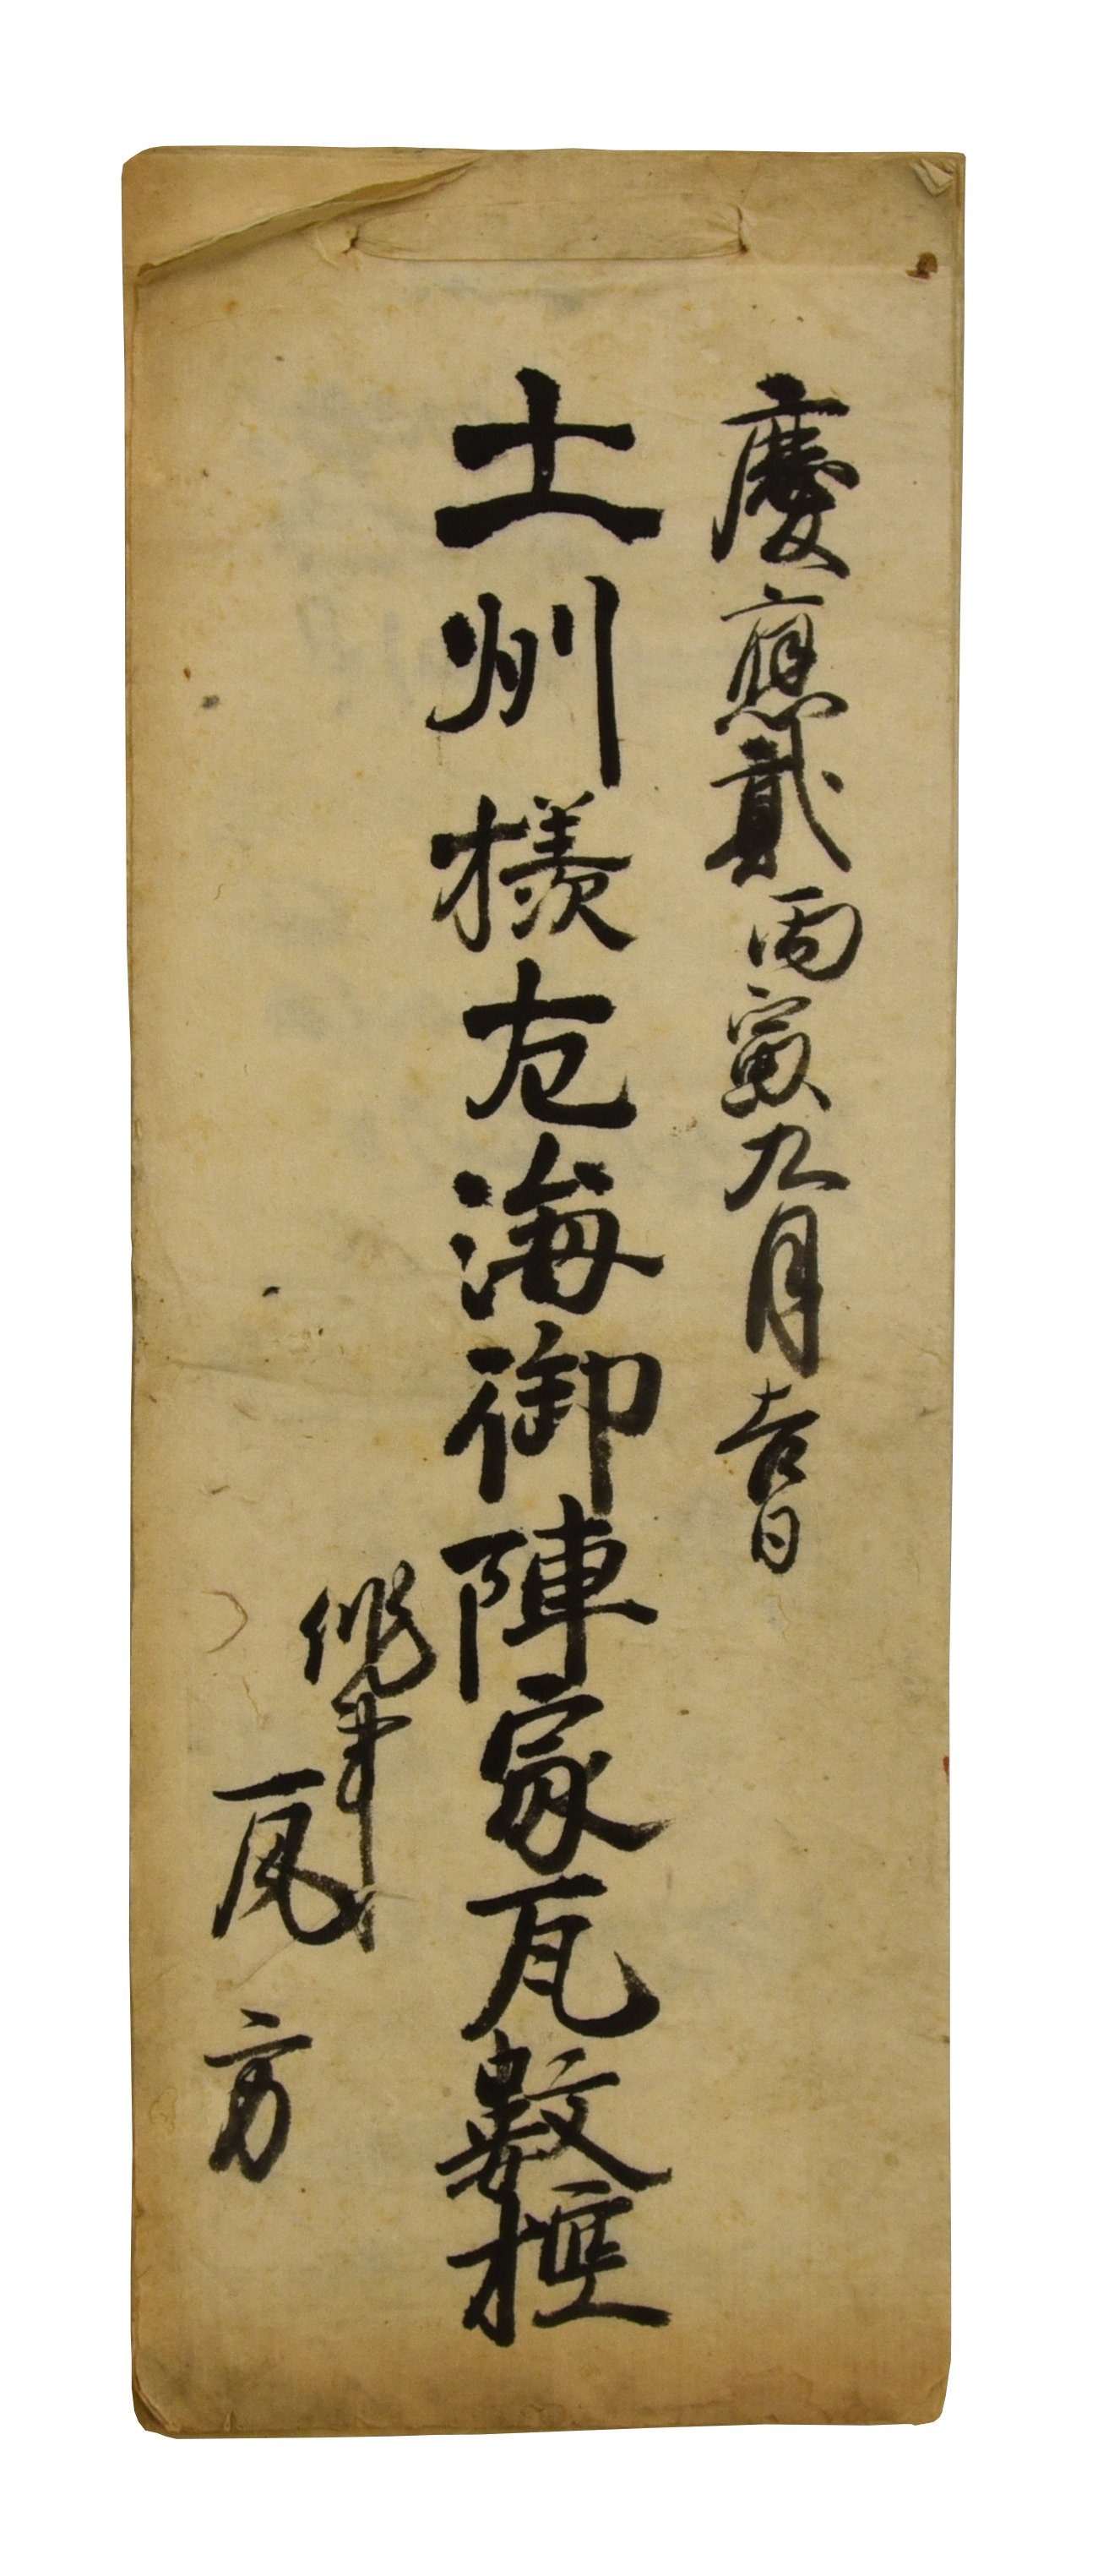 慶應貳丙寅九月吉日
土州様左海御陣家瓦數控
瓦方